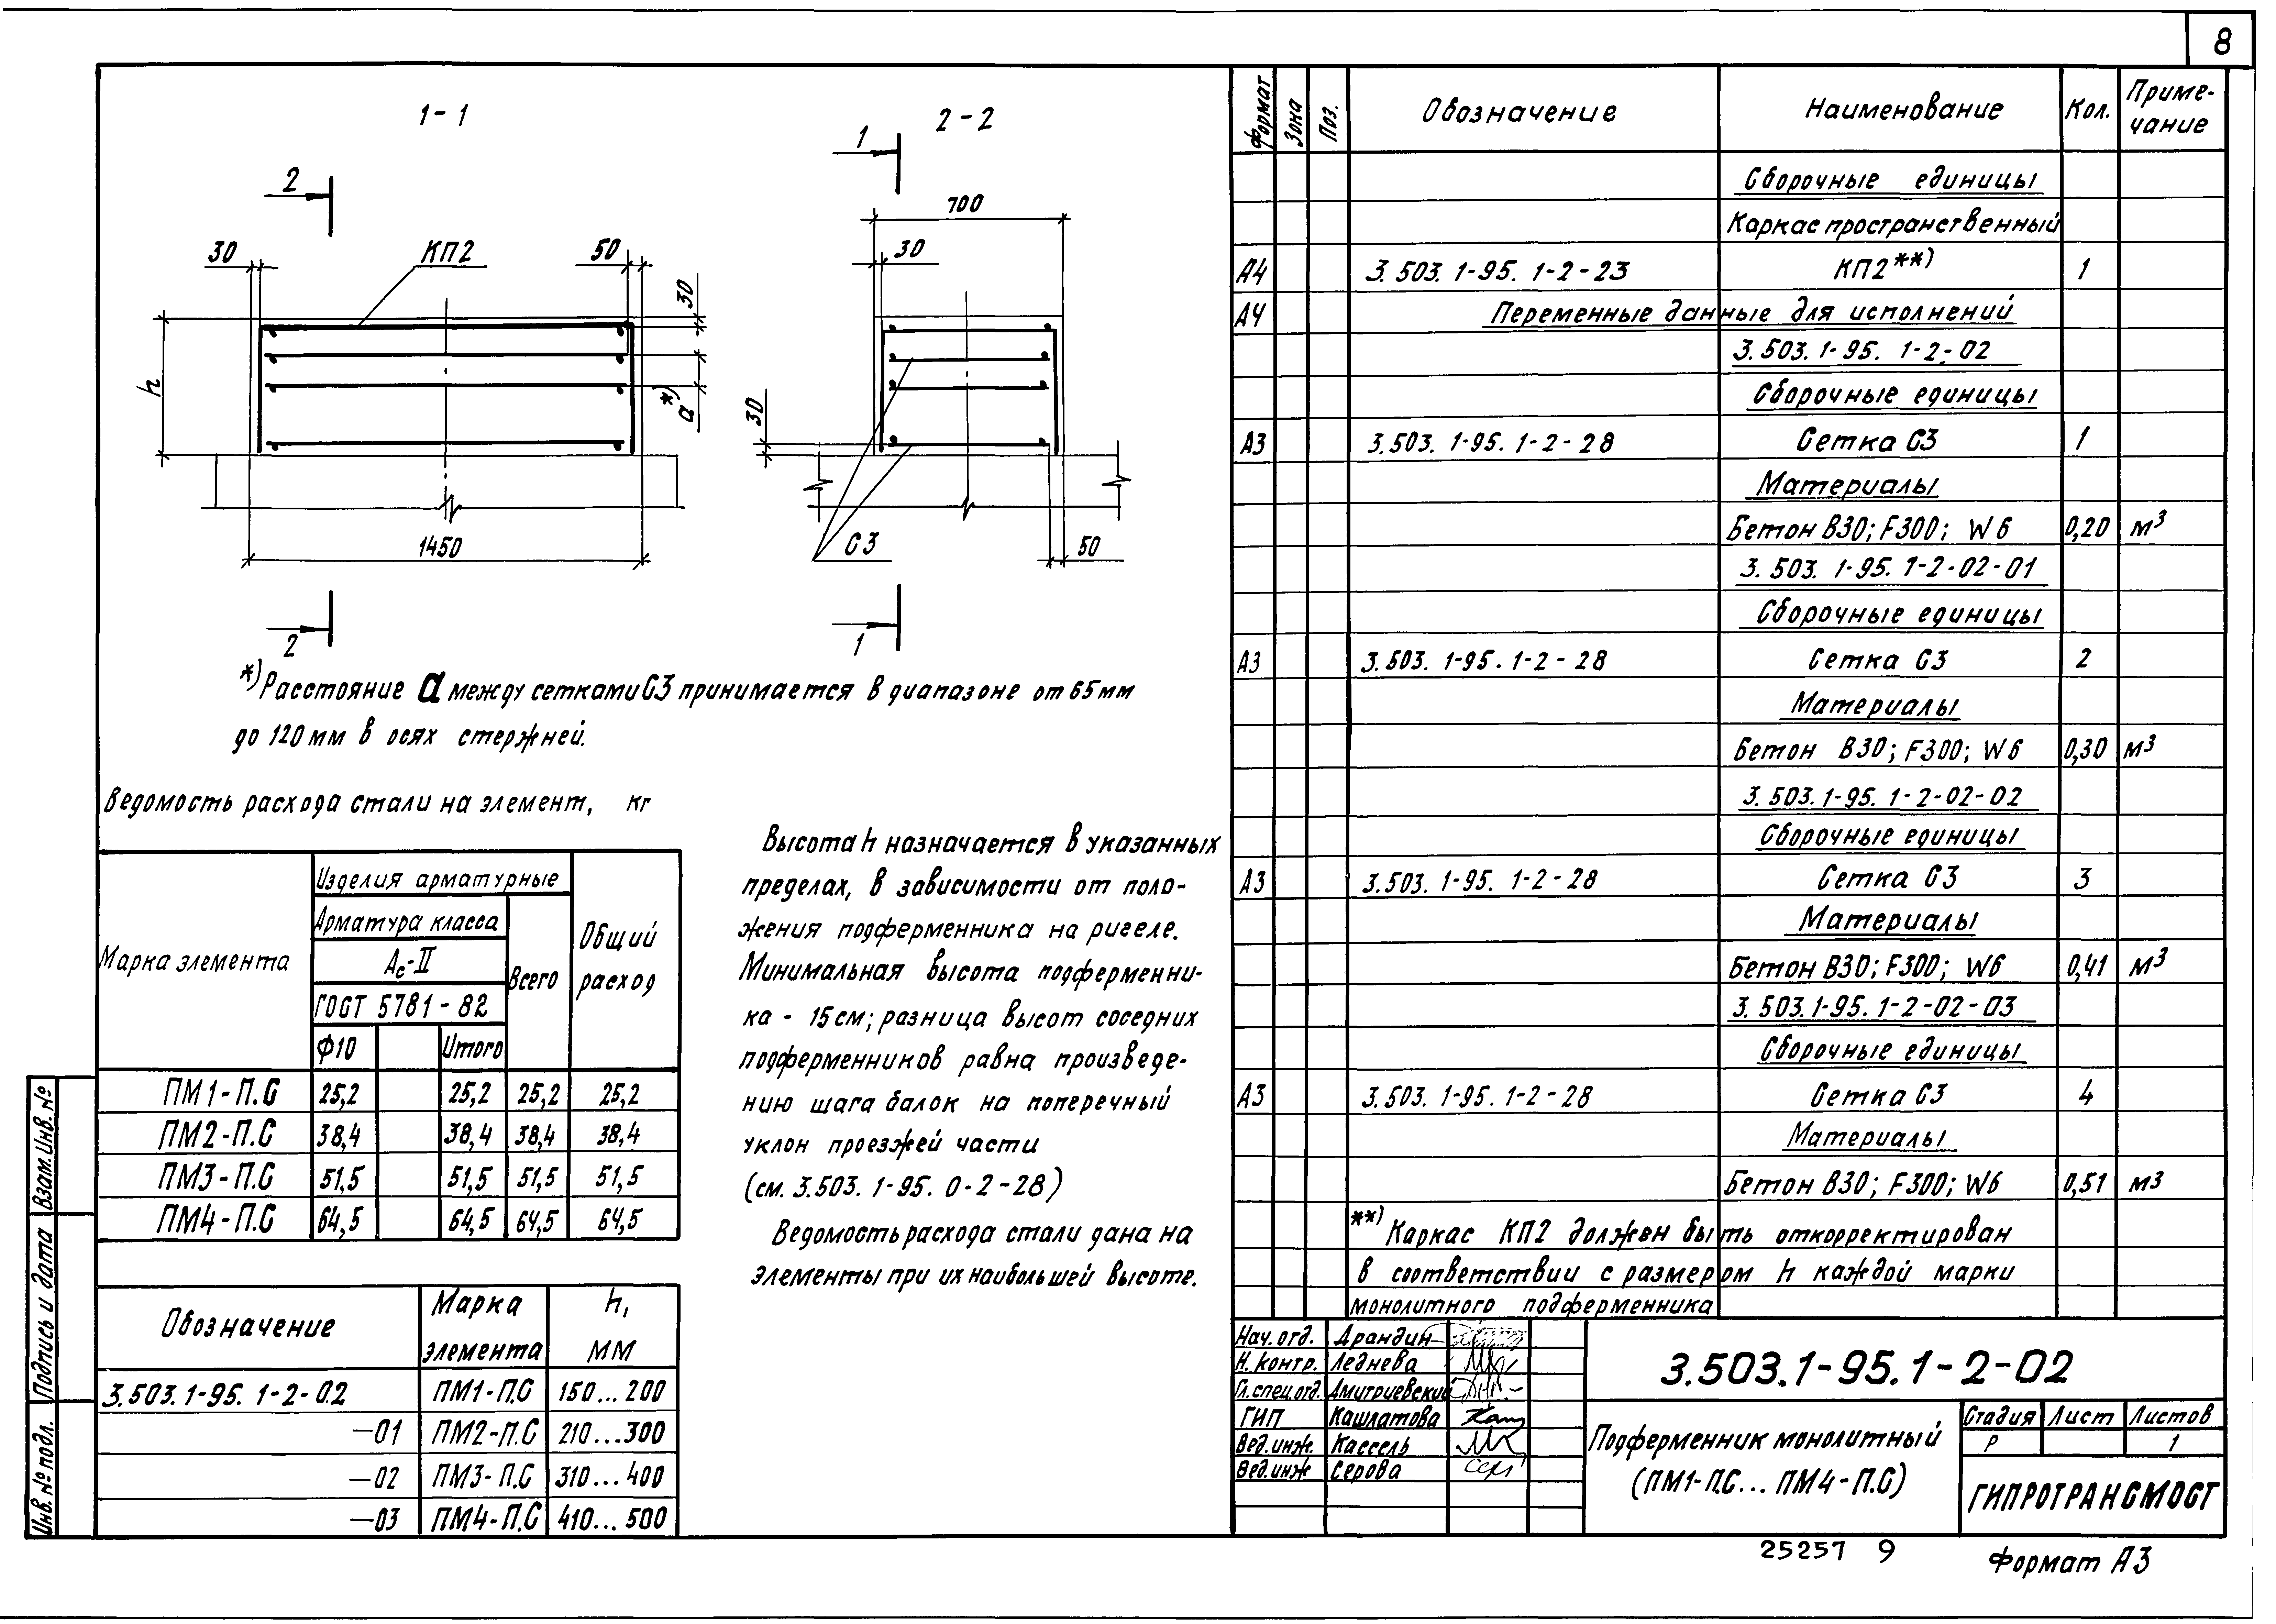 8
1-1
2
30
КП2
50
30
h
а*)
1450
2
2-2
1
700
30
30
С3
50
1
*) Расстояние а между сетками С3 принимается в диапазоне от 65мм
до 120мм в осях стержней.
Ведомость расхода стали на элемент, кг
Марка элемента
Изделия арматурные
Арматура класса
Ас-II
ГОСТ 5781-82
Ф10
Итого
Всего
Общий
расход
ПМ1-П.С 25,2 25,2 25,2 25,2
ПМ2-П.С 38,4 38,4 38,4 38,4
ПМ3-П.С 51,5 51,5 51,5 51,5
ПМ4-П.С 64,5 64,5 64,5 64,5
Обозначение Марка элемента h, мм
3.503.1-95.1-2-02 ПМ1-П.С 150...200
-01 ПМ2-П.С 210...300
-02 ПМ3-П.С 310...400
-03 ПМ4-П.С 410...500
Высота h назначается в указанных
пределах, в зависимости от поло-
жения подферменника на ригеле.
Минимальная высота подферменни-
ка - 15см; разница высот соседних
подферменников равна произведе-
нию шага балок на поперечный
уклон проезжей части
(см. 3.503.1-95.0-2-28)
Ведомость расхода стали дана на
элементы при их наибольшей высоте.
Формат Зона Поз. Обозначение Наименование Кол. Приме-
чание
Сборочные единицы
Каркас пространственный
А4 3.503.1-95.1-2-23 КП2**) 1
А4 Переменные данные для исполнений
3.503.1-95.1-2-02
Сборочные единицы
А3 3.503.1-95.1-2-28 Сетка С3 1
Материалы
Бетон В30; F300; W6 0,20 м3
3.503.1-95.1-2-02-01
Сборочные единицы
А3 3.503.1-95.1-2-28 Сетка С3 2
Материалы
Бетон В30; F300; W6 0,30 м3
3.503.1-95.1-2-02-02
Сборочные единицы
А3 3.503.1-95.1-2-28 Сетка С3 3
Материалы
Бетон В30; F300; W6 0,41 м3
3.503.1-95.1-2-02-03
Сборочные единицы
А3 3.503.1-95.1-2-28 Сетка С3 4
Материалы
Бетон В30; F300; W6 0,51 м3
**) Каркас КП2 должен быть откорректирован
в соответствии с размером h каждой марки
монолитного подферменника
Нач. отд. Драндин
Н. контр. Леднева
Гл. спец. отд. Дмитриевский
ГИП Кашлатова
Вед. инж. Кассель
Вед. инж Серова
3.503.1-95.1-2-02
Подферменник монолитный
(ПМ1-П.С... ПМ4-П.С)
Стадия Лист Листов
Р 1
ГИПРОТРАНСМОСТ
25257 9
Формат А3
Взам. Инв. №
Подпись и дата
Инв. № подл.